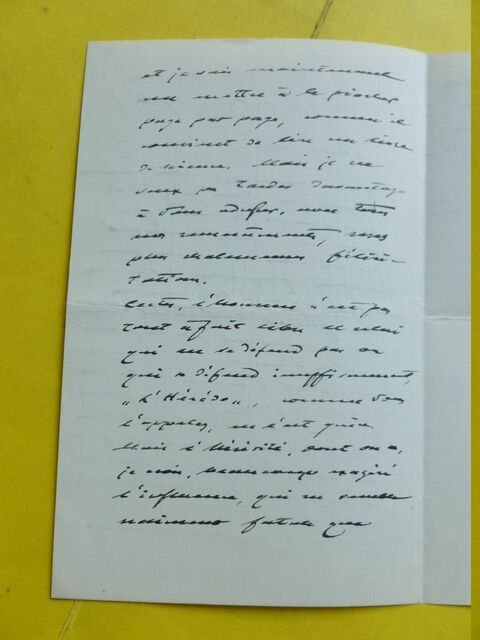 et je vais maintenant
me mettre à le piocher
page par page, comme il
convient de lire un livre
de science. Mais je ne
veux pas tarder davantage
à vous adresser, avec tous
mes remerciements, mes
plus chaleureuses félici-
tations.
Certes, l'homme n'est pas
tout à fait libre et celui
qui ne se défend pas ou
qui se défend insuffisamment,
"L'Hérédo", comme vous
l'appelez, ne l'est guère.
Mais l'hérédité, dont on a,
je crois, beaucoup exagéré
l'influence, qui ne semble
vraiment fatale que